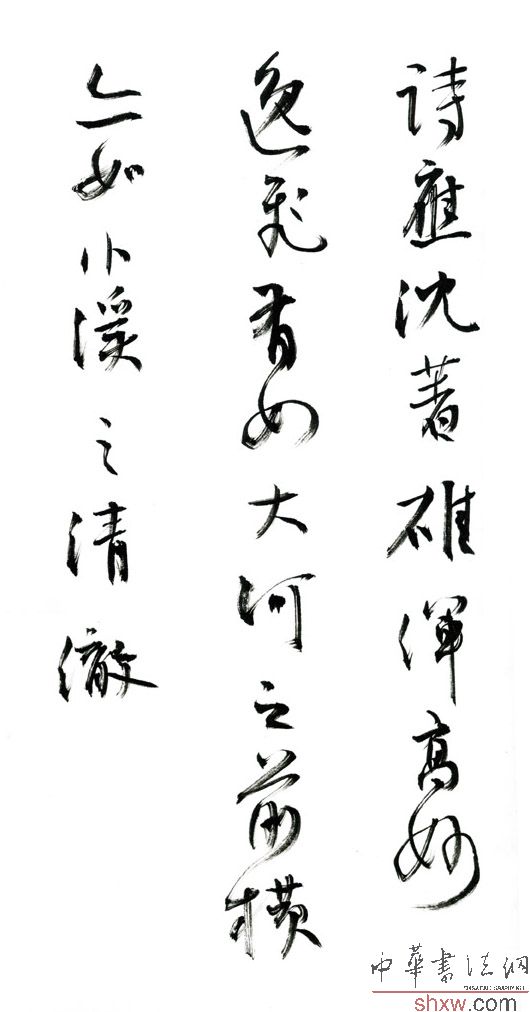 诗应沈著雄浑高妙
逸飞有如大河之前横
亦如小溪之清澈
中華書法網
shxw.com